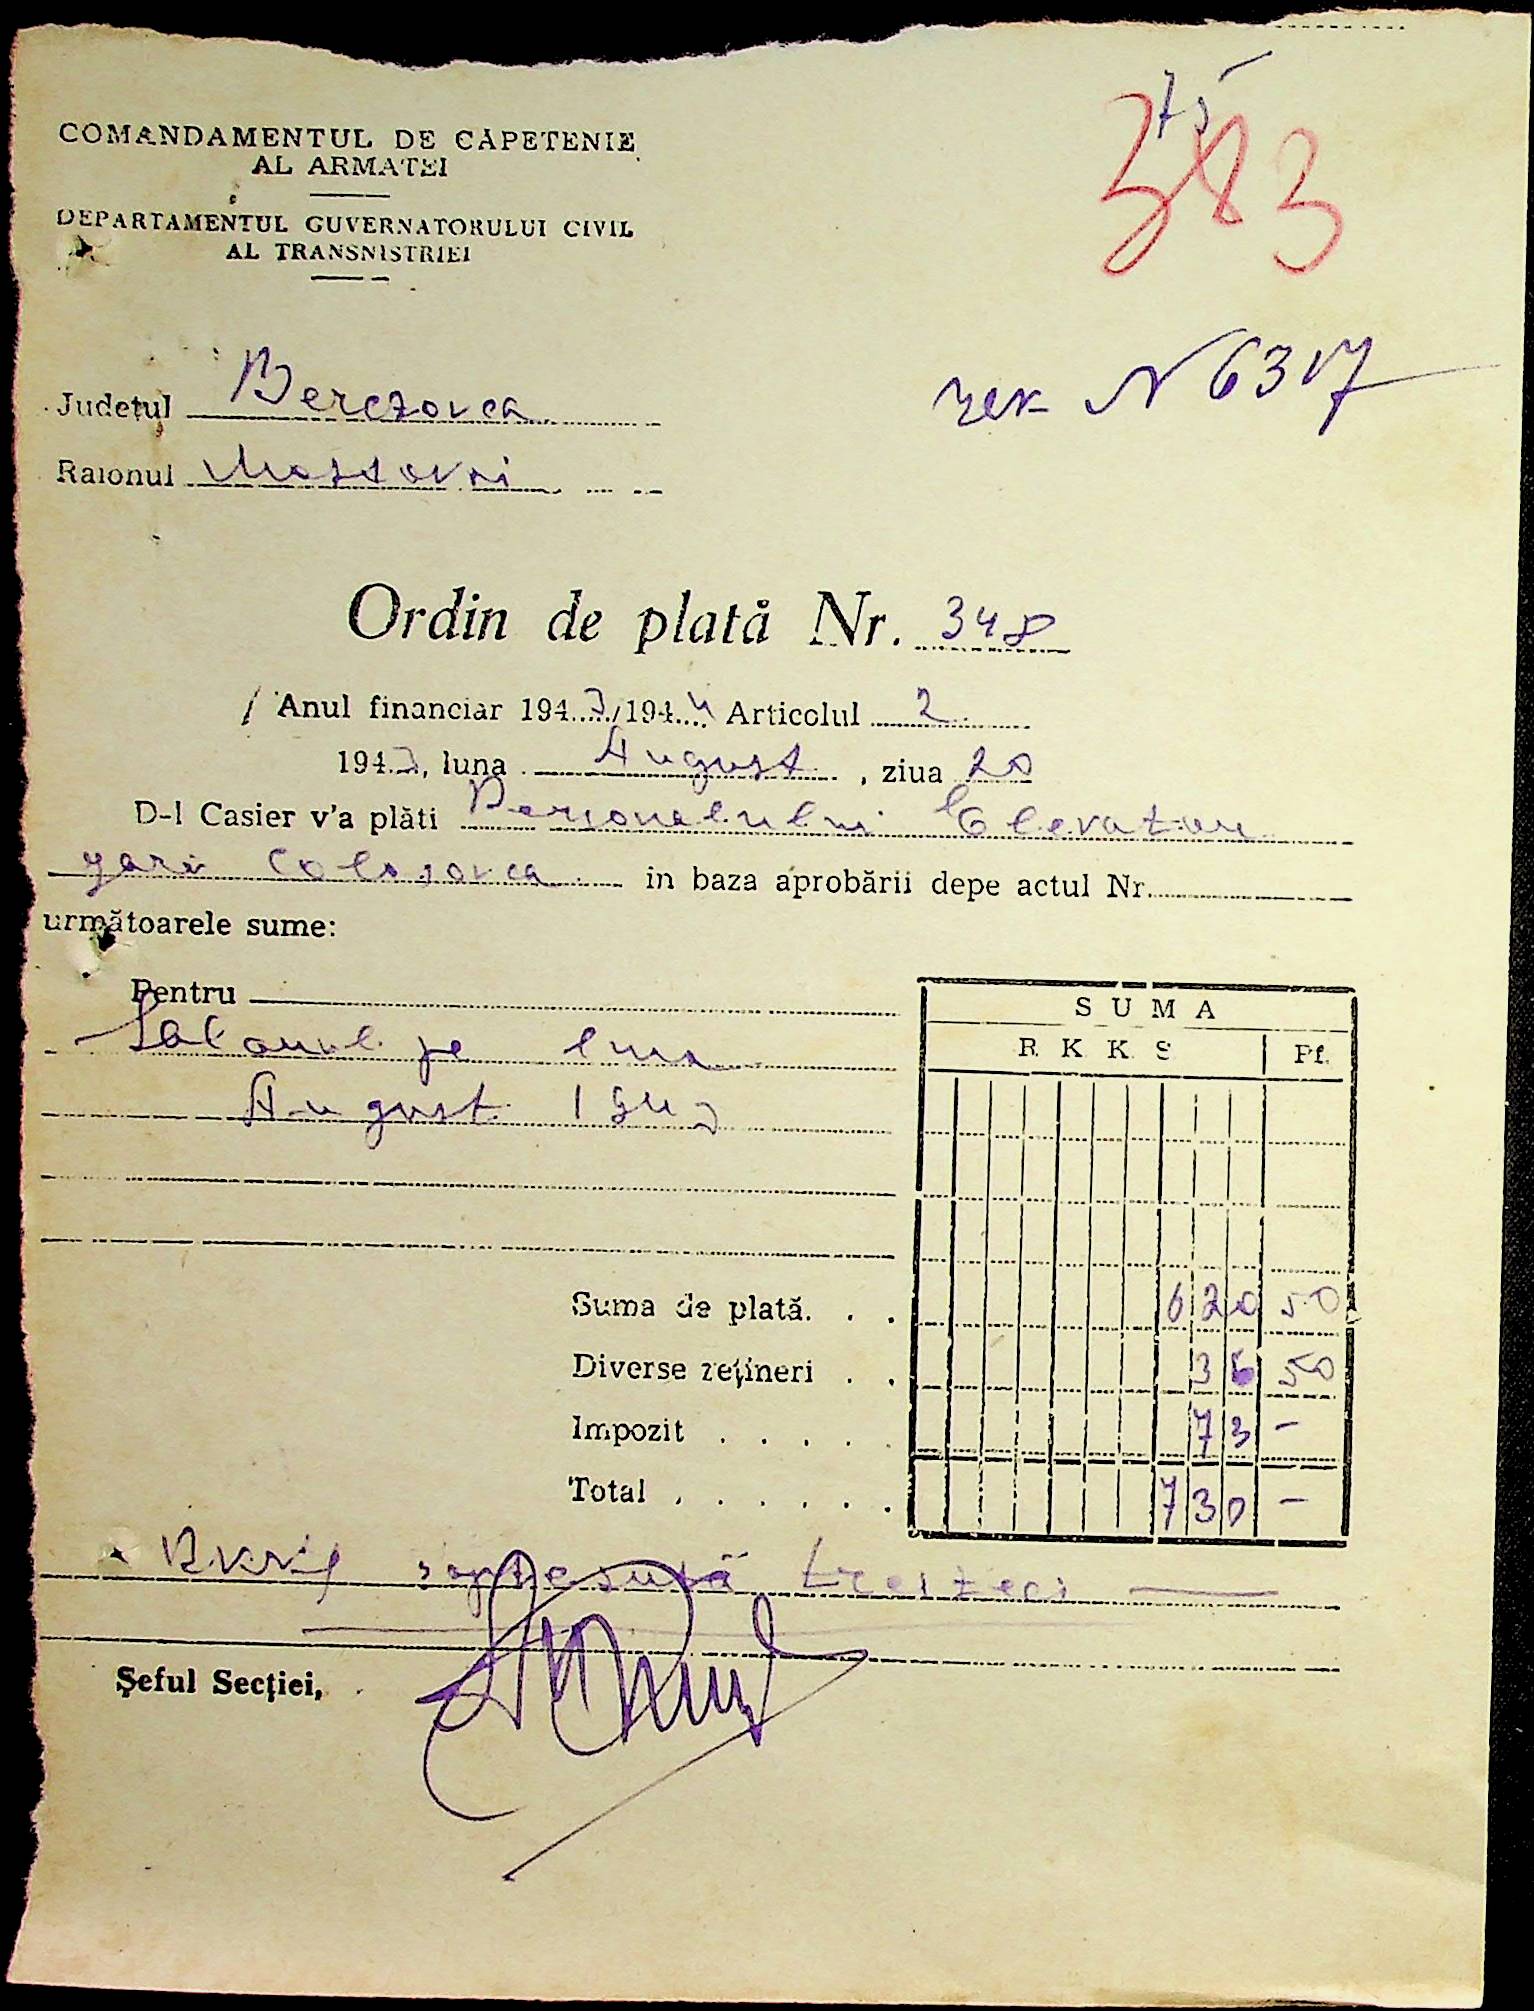 75
383
COMANDAMENTUL DE CĂPETENIE
AL ARMATEI
DEPARTAMENTUL GUVERNATORULUI CIVIL
AL TRANSNISTRIEI
Județul Berezovca
Raionul Mostovoi
чек N 6317
Ordin de plată Nr. 348
Anul financiar 1943/1944 Articolul 2
1943, luna August, ziua 20
D-l Casier v'a plăti Personalului Elevator
gari Colosovca in baza aprobării depe actul Nr.
următoarele sume:
Pentru
Salariul pe luna
August 1943
SUMA
RKKS Pf.
Suma de plată. . . 620 50
Diverse rețineri . . 36 50
Impozit . . . . . 73 -
Total . . . . . . 730 -
șaptesută treizeci
Șeful Secției,